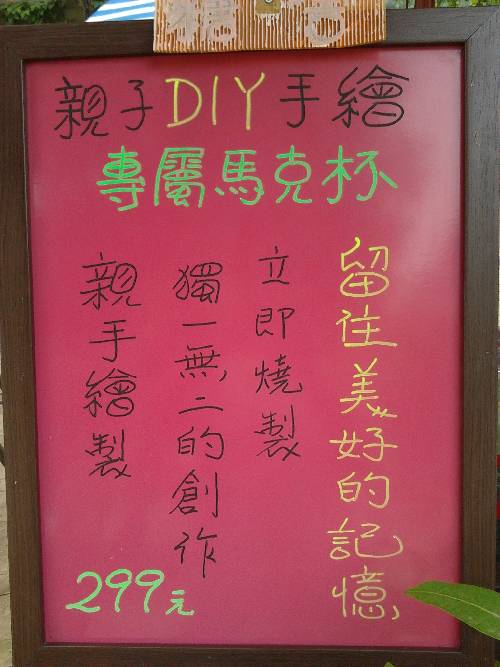 親子DIY手繪
專屬馬克杯
留住美好的記憶
立即燒製
獨一無二的創作
親手繪製
299元